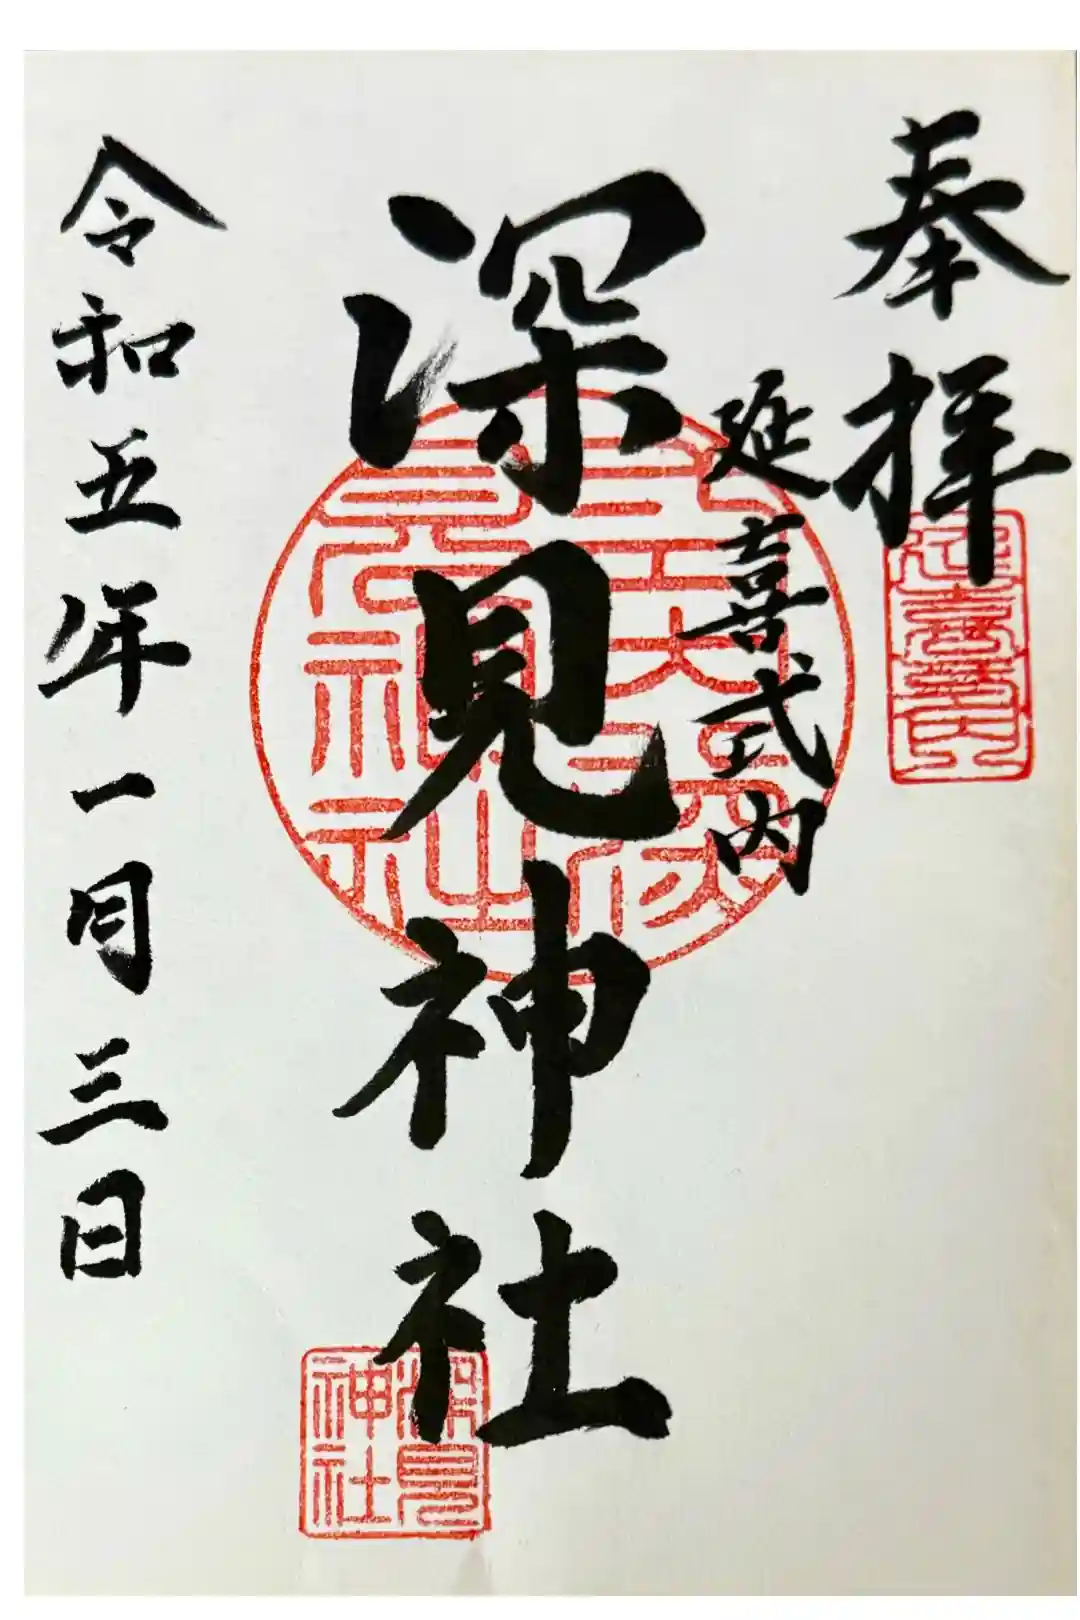 奉拝
延喜式内
深見神社
令和五年一月三日
延喜式内
深見
神社